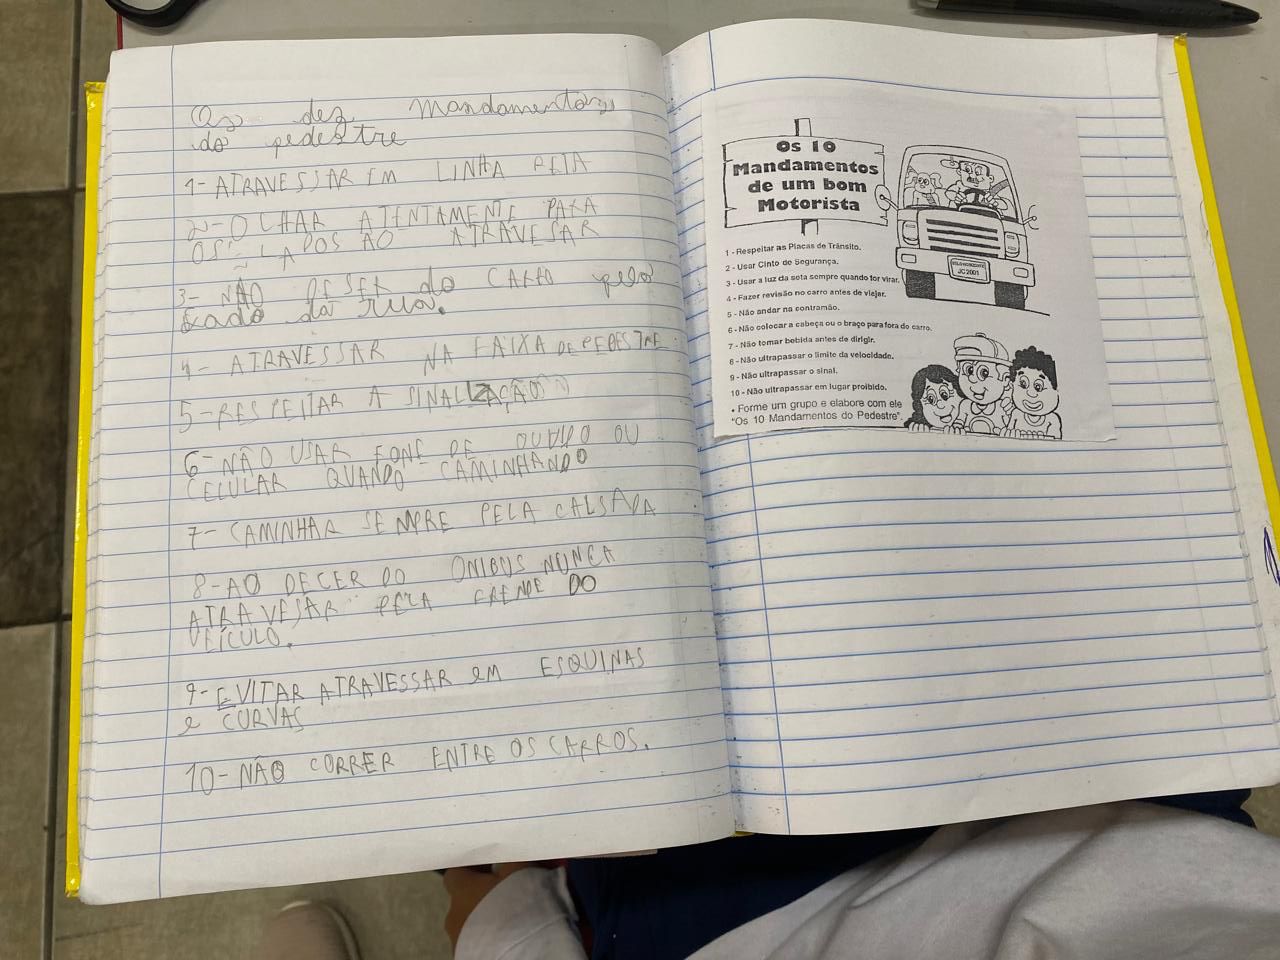 Os dez Mandamentos
do pedestre
1- ATRAVESSAR EM LINHA RETA
2- OLHAR ATENTAMENTE PARA
OS LADOS AO ATRAVESAR
3- NÃO DESER do CARRO pelo
Lado da rua.
4- ATRAVESSAR NA FAIXA DE PEDESTRE
5- RESPEITAR A SINALIZAÇÃO
6- NÃO USAR FONE DE OUVIDO OU
CELULAR QUANDO CAMINHANDO
7- CAMINHAR SEMPRE PELA CALSADA
8- AO DECER DO ONIBUS NUNCA
ATRAVESAR PELA FRENDE DO
VEÍCULO.
9- EVITAR ATRAVESSAR em ESQUINAS
e CURVAS
10- NÃO CORRER ENTRE OS CARROS.
Os 10
Mandamentos
de um bom
Motorista
JC 2001
1 - Respeitar as Placas de Trânsito.
2 - Usar Cinto de Segurança.
3 - Usar a luz da seta sempre quando for virar.
4 - Fazer revisão no carro antes de viajar.
5 - Não andar na contramão.
6 - Não colocar a cabeça ou o braço para fora do carro.
7 - Não tomar bebida antes de dirigir.
8 - Não ultrapassar o limite da velocidade.
9 - Não ultrapassar o sinal.
10 - Não ultrapassar em lugar proibido.
• Forme um grupo e elabore com ele
"Os 10 Mandamentos do Pedestre".